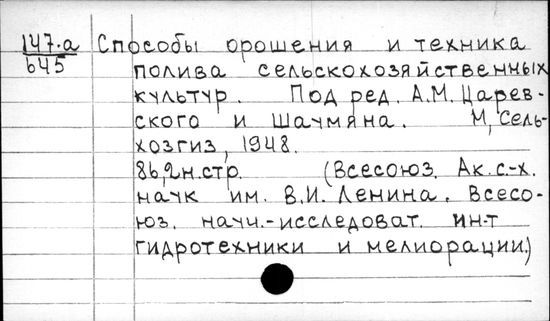 147-а Способы орошения и техника
б45 полива сельскохозяйственных
культур. Под ред. А.М. Царев-
ского и Шаумяна. М, Сель-
хозгиз, 1948.
86,2н.стр. (Всесоюз. Ак. с-х.
наук им. В.И. Ленина. Всесо-
юз. науч.-исследоват. ин-т
гидротехники и мелиорации)